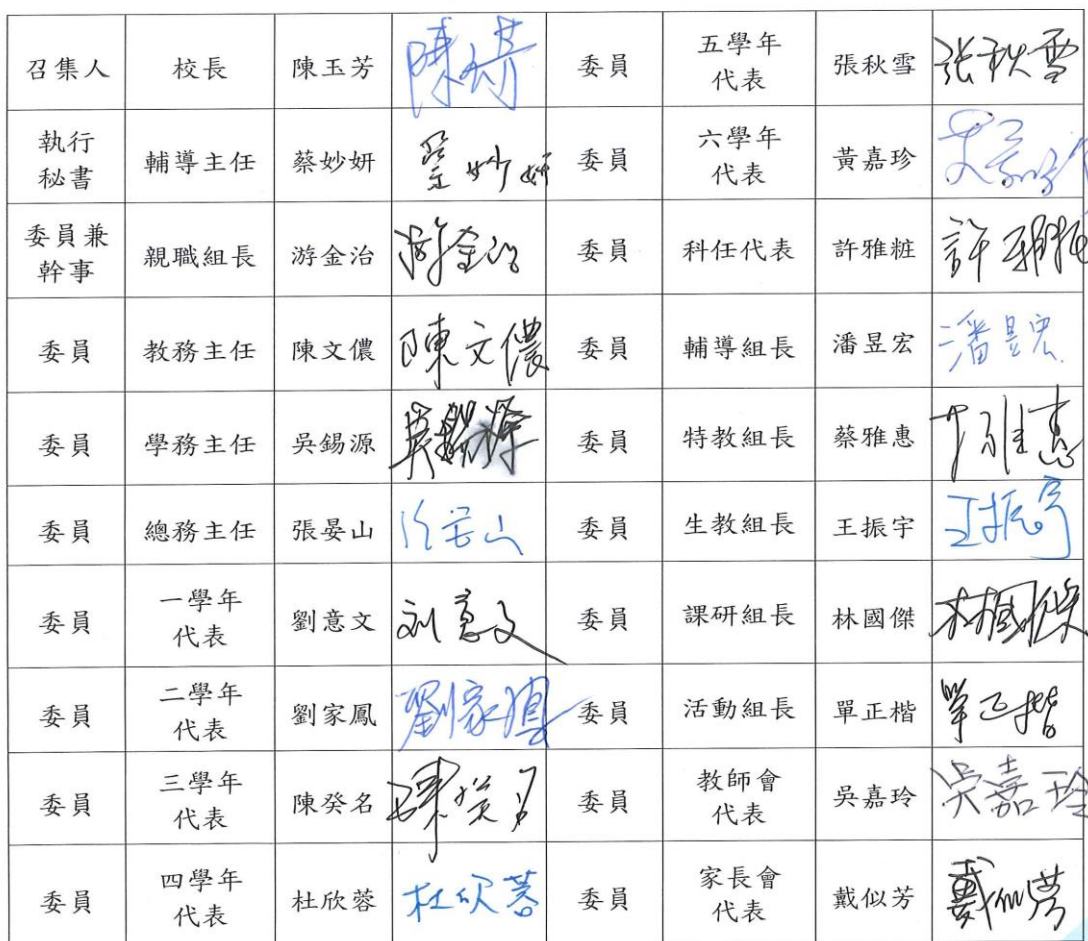 召集人 校長 陳玉芳 陳玉芳 委員 五學年代表 張秋雪 张秋雪
執行秘書 輔導主任 蔡妙妍 蔡妙妍 委員 六學年代表 黃嘉珍
委員兼幹事 親職組長 游金治 游金治 委員 科任代表 許雅粧 許雅粧
委員 教務主任 陳文儂 陳文儂 委員 輔導組長 潘昱宏 潘昱宏
委員 學務主任 吳錫源 委員 特教組長 蔡雅惠
委員 總務主任 張晏山 委員 生教組長 王振宇 王振宇
委員 一學年代表 劉意文 刘意文 委員 課研組長 林國傑 林國傑
委員 二學年代表 劉家鳳 劉家鳳 委員 活動組長 單正楷 單正楷
委員 三學年代表 陳癸名 陳癸名 委員 教師會代表 吳嘉玲 吳嘉玲
委員 四學年代表 杜欣蓉 杜欣蓉 委員 家長會代表 戴似芳 戴似芳